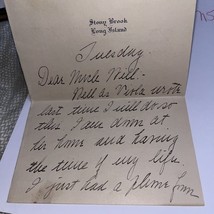 Stony Brook
Long Island
Tuesday.
Dear Uncle Will -
Well as Viola wrote
last time I will do so
this. I am down at
her home and having
the time of my life.
I just had a phone from